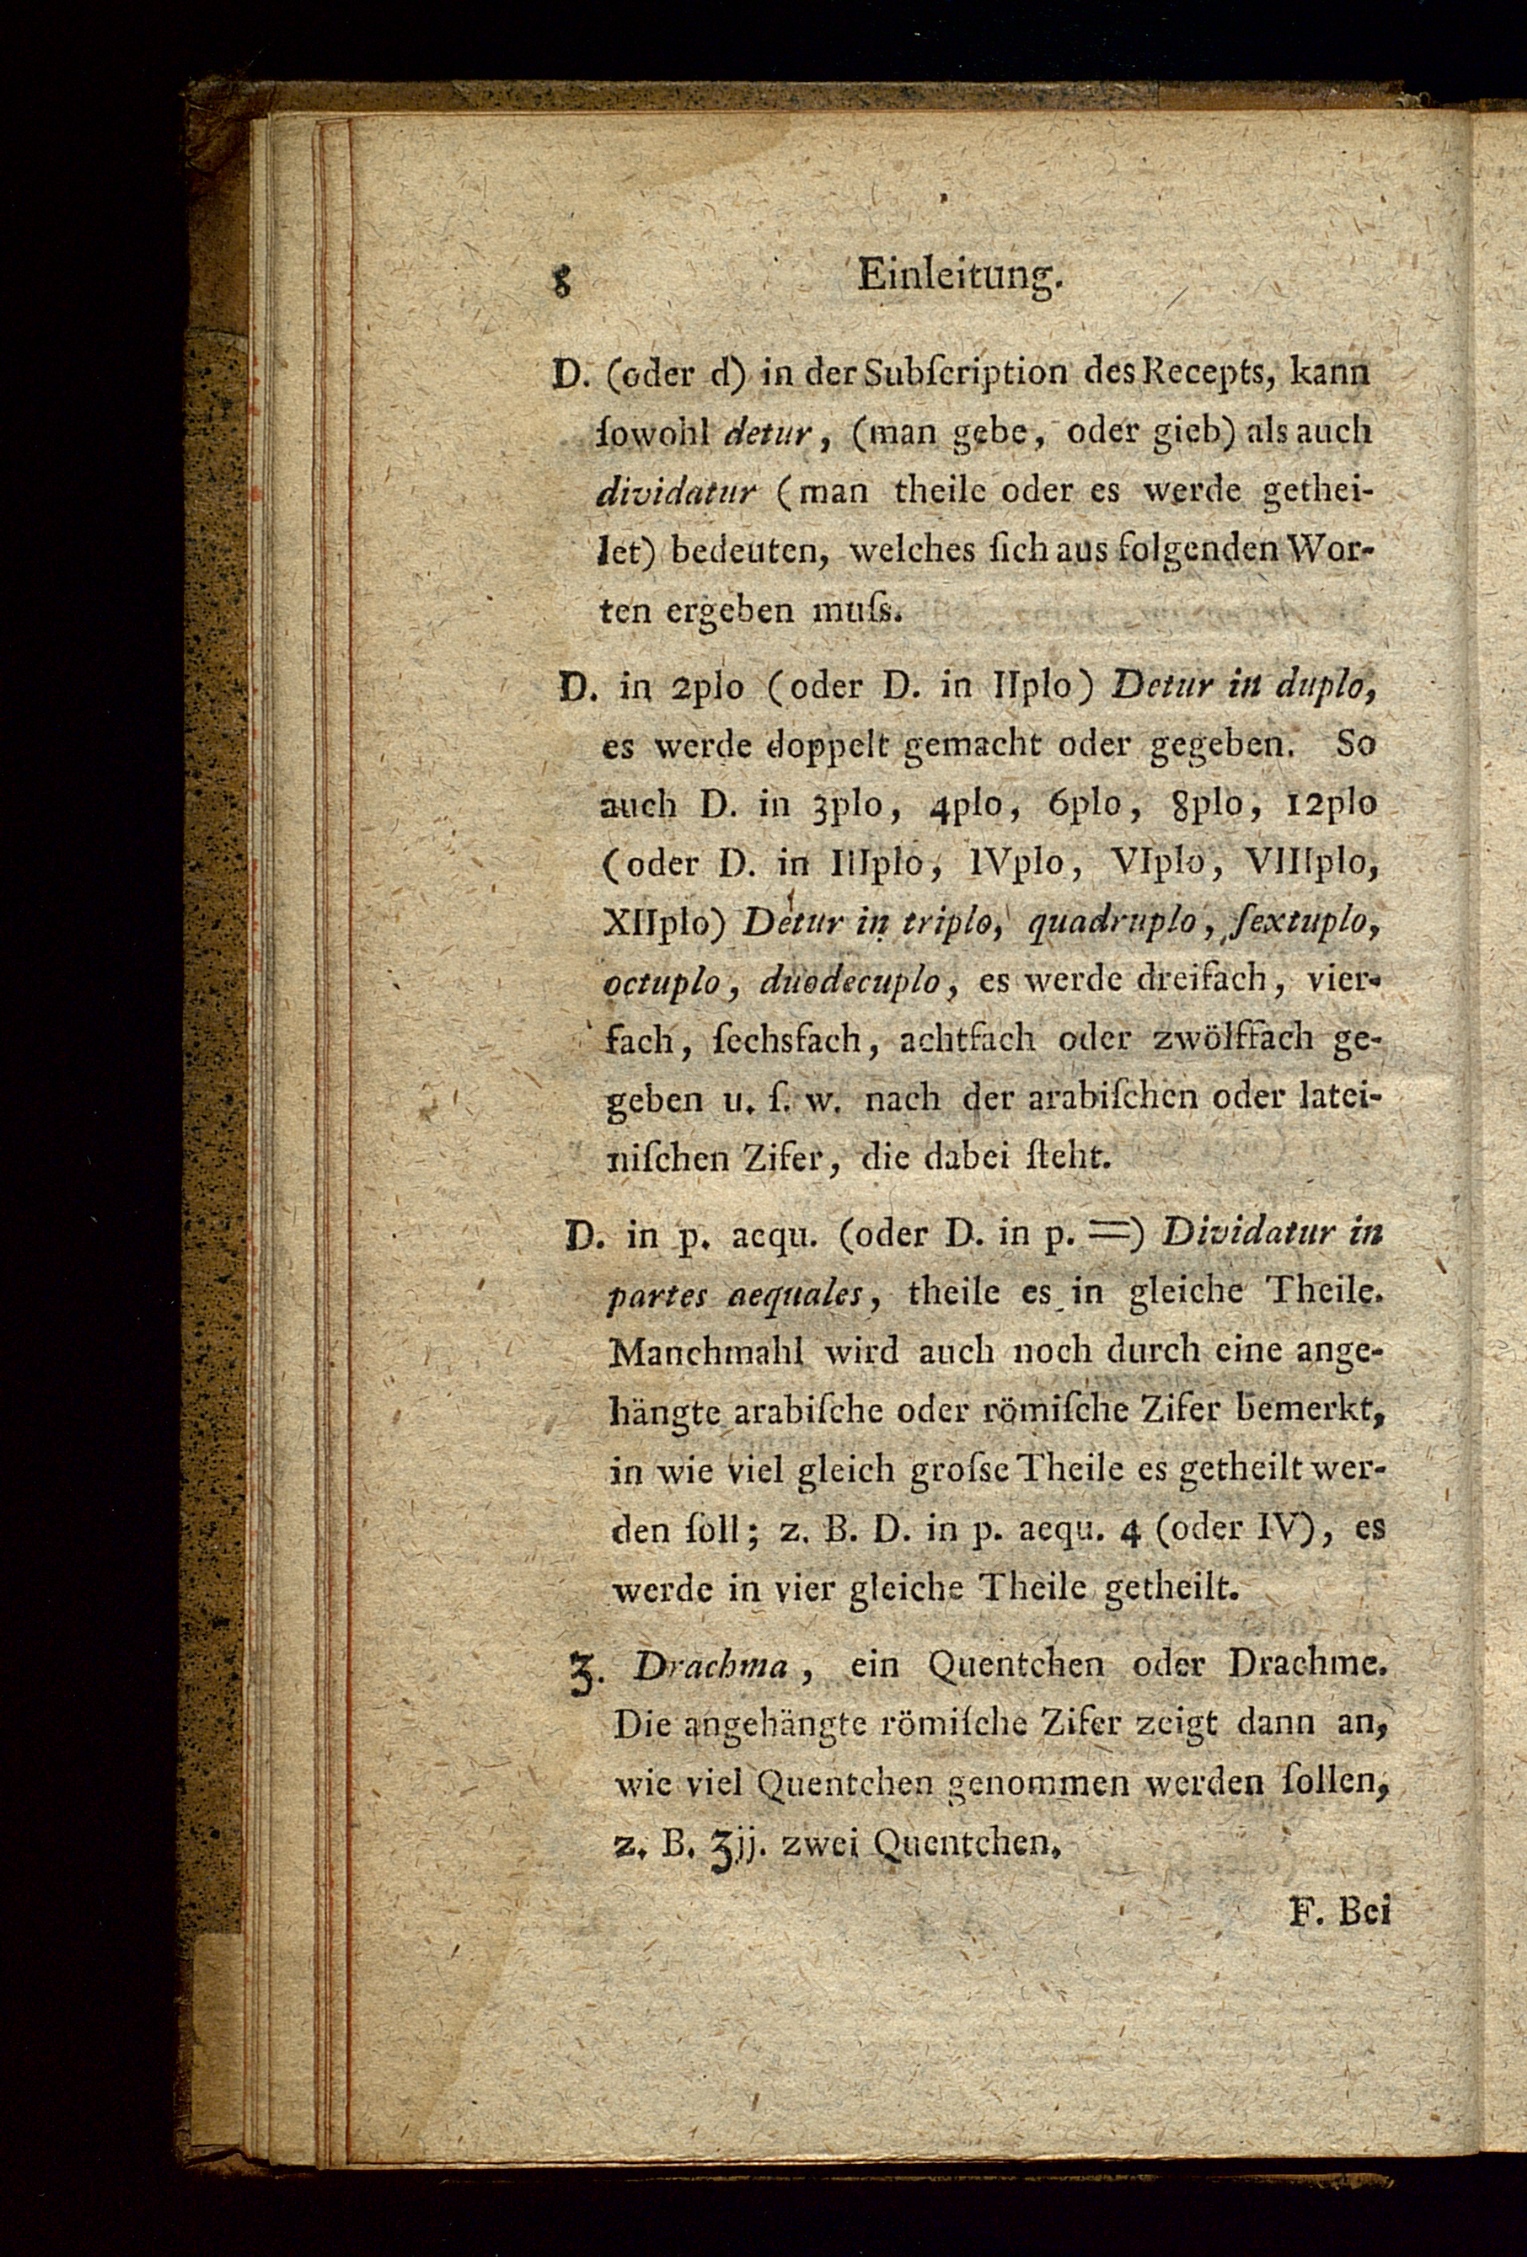 8 Einleitung.
D. (oder d) in der Subſcription des Recepts, kann
ſowohl detur, (man gebe, oder gieb) als auch
dividatur (man theile oder es werde gethei-
let) bedeuten, welches ſich aus folgenden Wor-
ten ergeben muſs.
D. in 2plo (oder D. in IIplo) Detur in duplo,
es werde doppelt gemacht oder gegeben. So
auch D. in 3plo, 4plo, 6plo, 8plo, 12plo
(oder D. in IIIplo, IVplo, VIplo, VIIIplo,
XIIplo) Detur in triplo, quadruplo, ſextuplo,
octuplo, duodecuplo, es werde dreifach, vier-
fach, ſechsfach, achtfach oder zwölffach ge-
geben u. ſ. w. nach der arabiſchen oder latei-
niſchen Zifer, die dabei ſteht.
D. in p. aequ. (oder D. in p. =) Dividatur in
partes aequales, theile es in gleiche Theile.
Manchmahl wird auch noch durch eine ange-
hängte arabiſche oder römiſche Zifer bemerkt,
in wie viel gleich groſse Theile es getheilt wer-
den ſoll; z. B. D. in p. aequ. 4 (oder IV), es
werde in vier gleiche Theile getheilt.
ʒ. Drachma, ein Quentchen oder Drachme.
Die angehängte römiſche Zifer zeigt dann an,
wie viel Quentchen genommen werden ſollen,
z. B. ʒjj. zwei Quentchen.
F. Bei